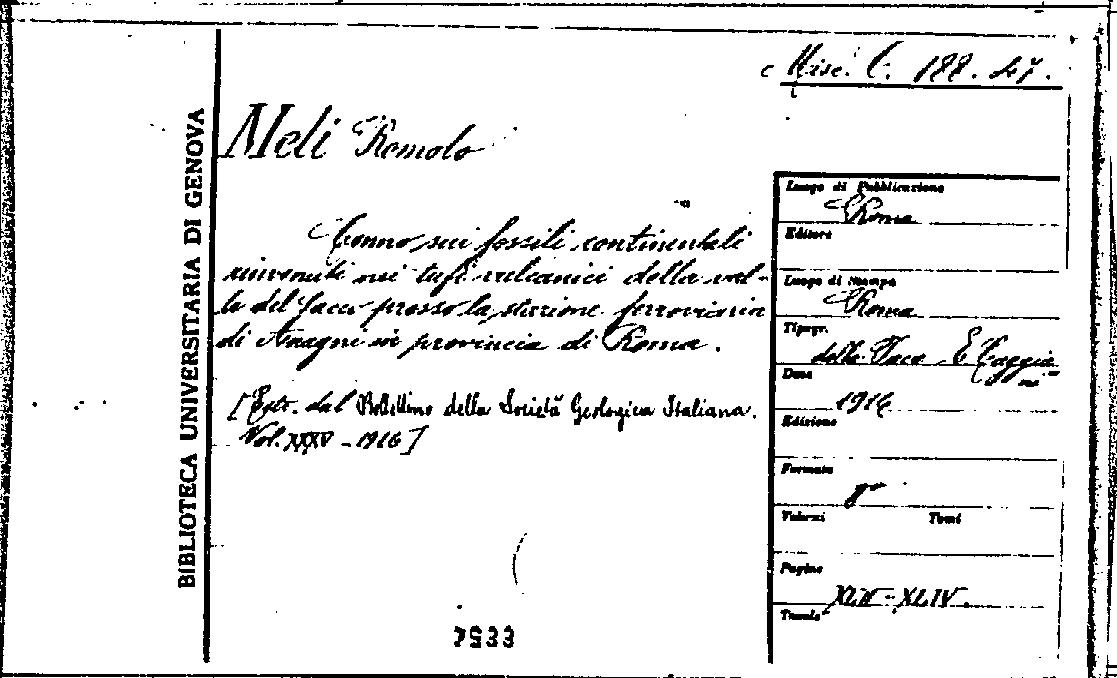 BIBLIOTECA UNIVERSITARIA DI GENOVA
Misc. C. 188. 47.
Meli Romolo
Cenno sui fossili continentali
rinvenuti nei tufi vulcanici della val-
le del Sacco presso la stazione ferroviaria
di Anagni in provincia di Roma.
[Estr. dal Bollettino della Società Geologica Italiana.
Vol. XXXV - 1916]
Luogo di Pubblicazione
Roma
Editore
Luogo di Stampa
Roma
Tipogr.
della Pace E. Cuggia
ni
Data
1916
Edizione
Formato
8°
Volumi Tomi
Pagine
XLII-XLIV.
Tavole
7533